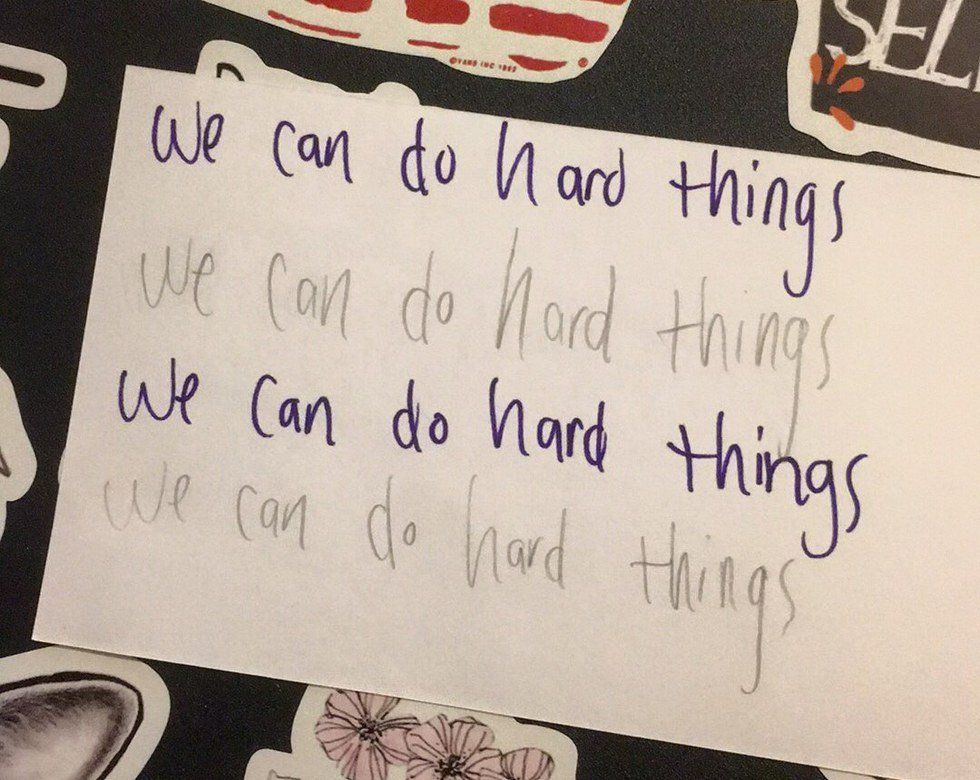 SEL
we can do hard things
we can do hard things
we can do hard things
we can do hard things